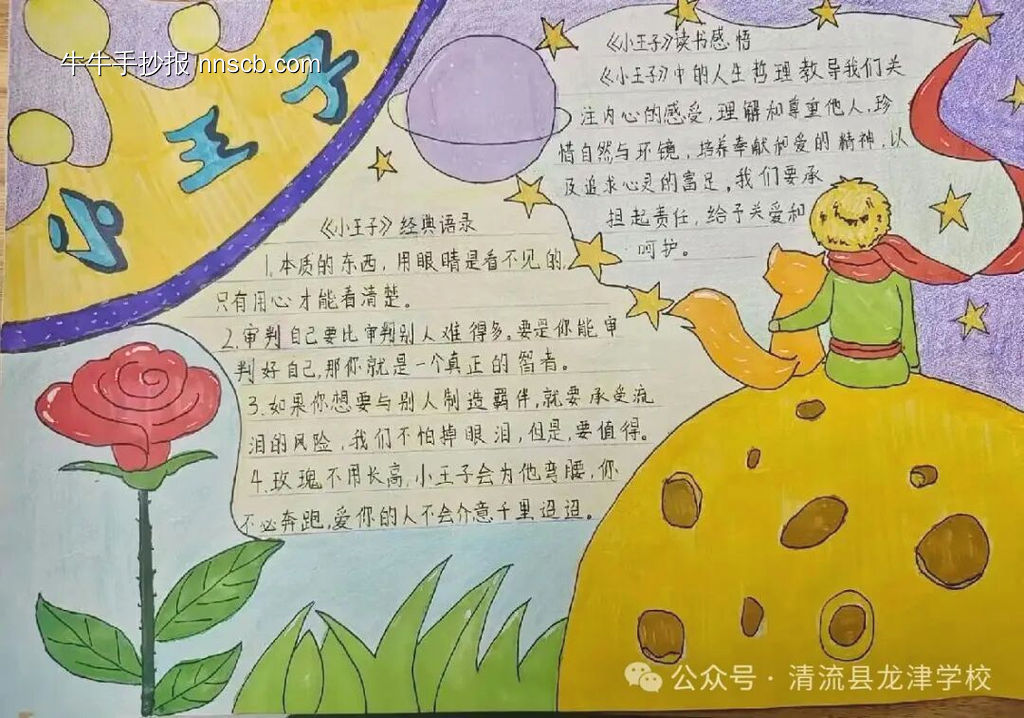 牛牛手抄报 nnscb.com
小王子
《小王子》读书感悟
《小王子》中的人生哲理教导我们关
注内心的感受,理解和尊重他人,珍
惜自然与环镜,培养奉献和爱的精神,以
及追求心灵的富足,我们要承
担起责任,给予关爱和
呵护。
《小王子》经典语录
1.本质的东西,用眼睛是看不见的,
只有用心才能看清楚。
2.审判自己要比审判别人难得多。要是你能审
判好自己,那你就是一个真正的智者。
3.如果你想要与别人制造羁伴,就要承受流
泪的风险,我们不怕掉眼泪,但是,要值得。
4.玫瑰不用长高,小王子会为他弯腰,你
不必奔跑,爱你的人不会介意千里迢迢。
公众号·清流县龙津学校